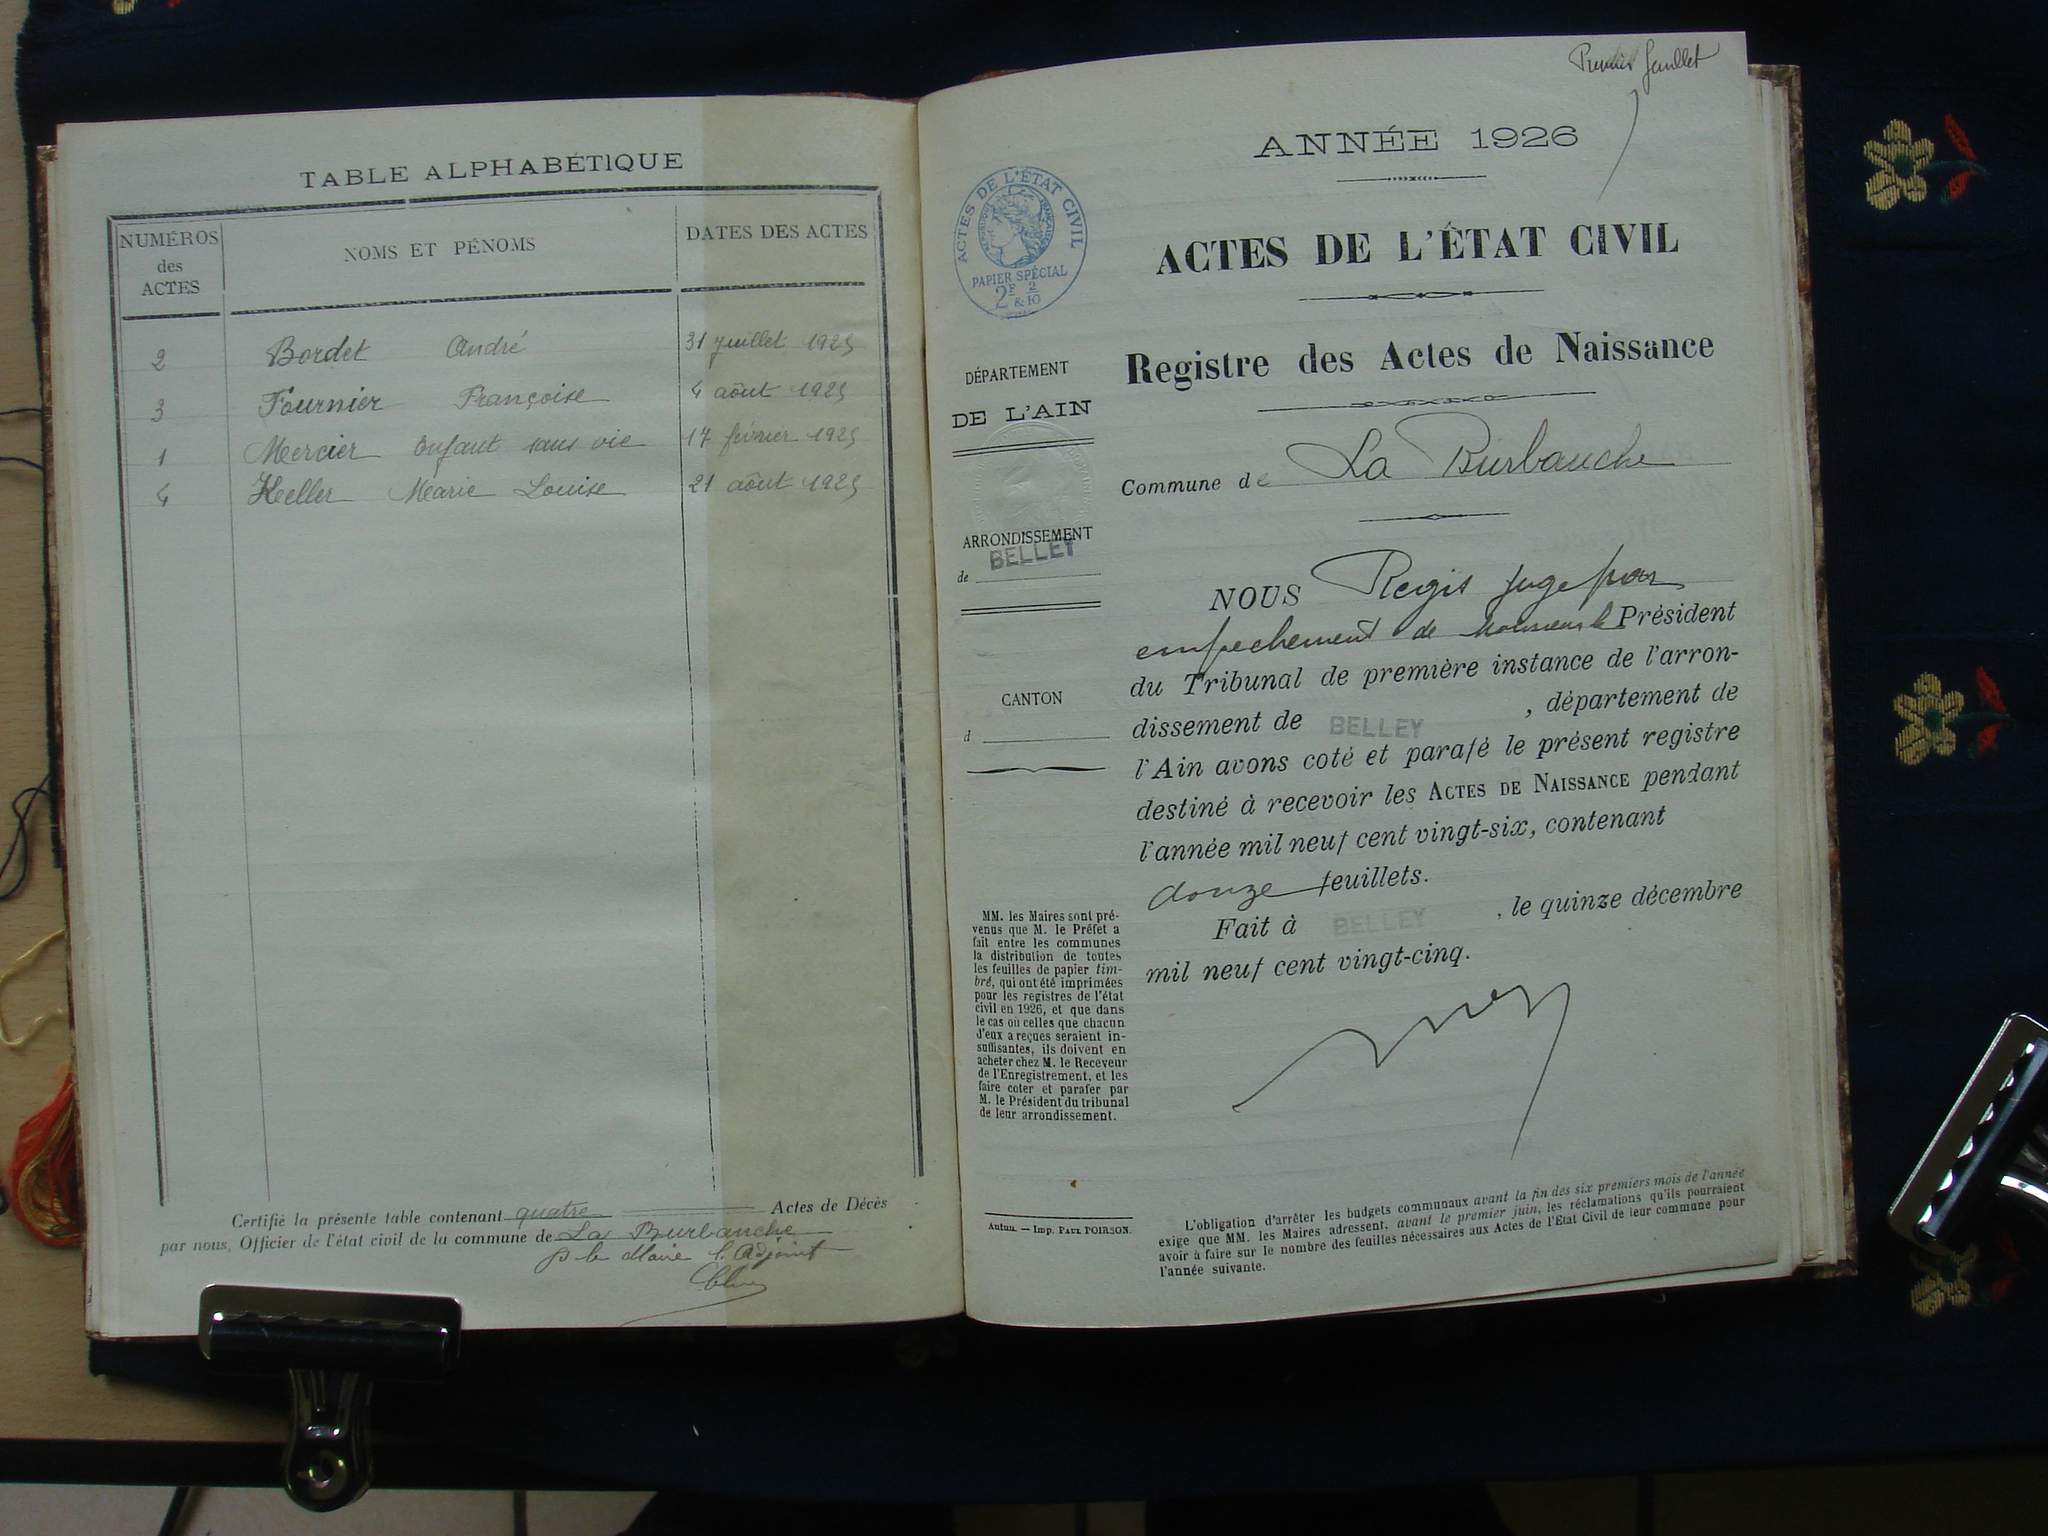 TABLE ALPHABÉTIQUE
NUMÉROS
des
ACTES
NOMS ET PÉNOMS
DATES DES ACTES
2 Bordet André 31 juillet 1925
3 Fournier Françoise 4 août 1925
1 Mercier Enfant sans vie 17 février 1925
4 Keller Marie Louise 21 août 1925
Certifié la présente table contenant quatre Actes de Décès
par nous, Officier de l'état civil de la commune de La Burbanche
p le Maire l'Adjoint
Premier feuillet
ANNÉE 1926
ACTES DE L'ÉTAT CIVIL
RÉPUBLIQUE FRANÇAISE
PAPIER SPÉCIAL
2F & 2/10
ACTES DE L'ÉTAT CIVIL
Registre des Actes de Naissance
DÉPARTEMENT
DE L'AIN
Commune de La Burbanche
ARRONDISSEMENT
de BELLEY
CANTON
d
NOUS Regis juge par
empechement de Monsieur le Président
du Tribunal de première instance de l'arron-
dissement de BELLEY , département de
l'Ain avons coté et parafé le présent registre
destiné à recevoir les ACTES DE NAISSANCE pendant
l'année mil neuf cent vingt-six, contenant
douze feuillets.
Fait à BELLEY , le quinze décembre
mil neuf cent vingt-cinq.
MM. les Maires sont pré-
venus que M. le Préfet a
fait entre les communes
la distribution de toutes
les feuilles de papier tim-
bré, qui ont été imprimées
pour les registres de l'état
civil en 1926, et que dans
le cas où celles que chacun
d'eux a reçues seraient in-
suffisantes, ils doivent en
acheter chez M. le Receveur
de l'Enregistrement, et les
faire coter et parafer par
M. le Président du tribunal
de leur arrondissement.
Autun. — Imp. PAUL POIRSON.
L'obligation d'arrêter les budgets communaux avant la fin des six premiers mois de l'année
exige que MM. les Maires adressent, avant le premier juin, les réclamations qu'ils pourraient
avoir à faire sur le nombre des feuilles nécessaires aux Actes de l'Etat Civil de leur commune pour
l'année suivante.